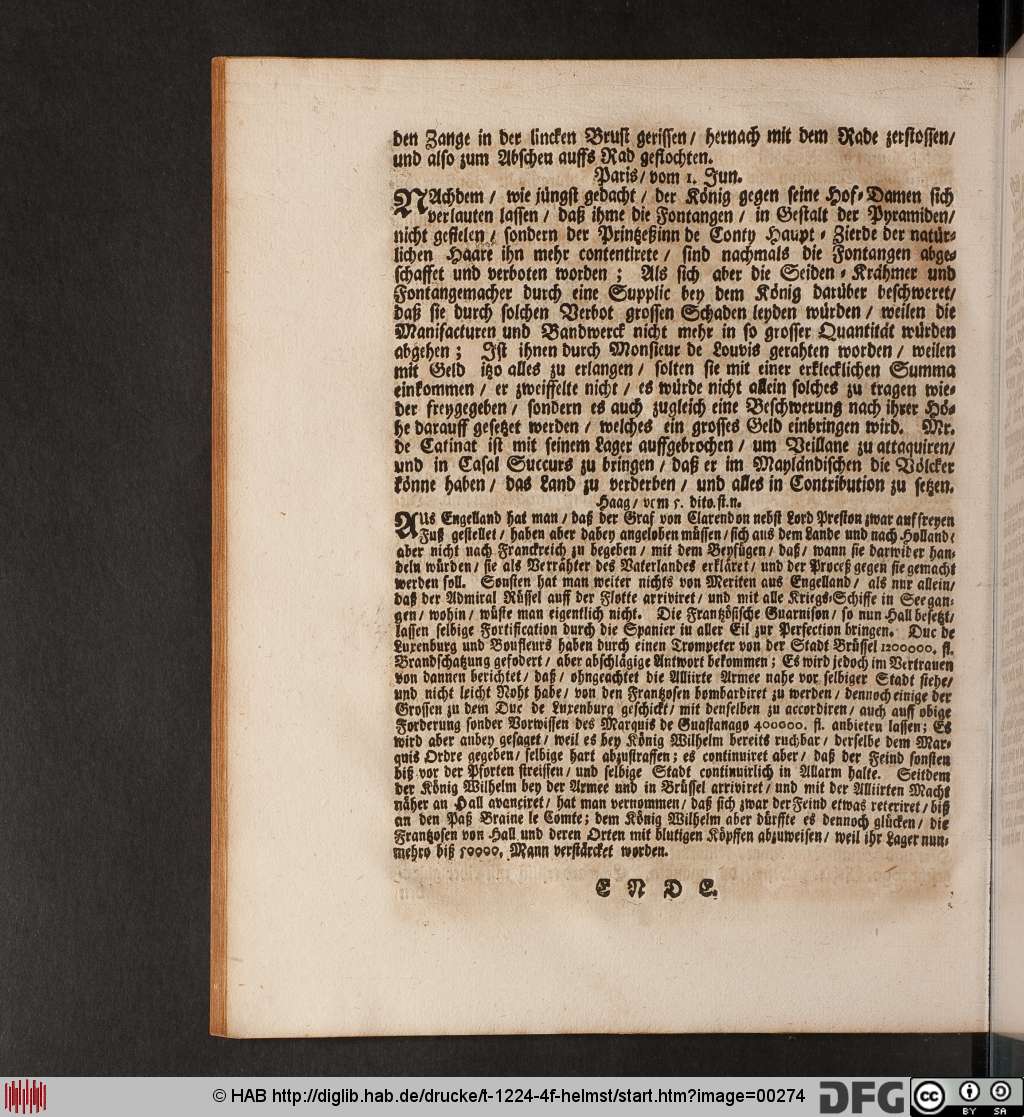 den Zange in der lincken Brust gerissen / hernach mit dem Rade zerstossen /
und also zum Abscheu auffs Rad geflochten.
Paris / vom 1. Jun.
NAchdem / wie jüngst gedacht / der König gegen seine Hof-Damen sich
verlauten lassen / daß ihme die Fontangen / in Gestalt der Pyramiden /
nicht gefielen / sondern der Printzeßinn de Conty Haupt-Zierde der natür-
lichen Haare ihn mehr contentirete / sind nachmals die Fontangen abge-
schaffet und verboten worden ; Als sich aber die Seiden-Krähmer und
Fontangemacher durch eine Supplic bey dem König darüber beschweret /
daß sie durch solchen Verbot grossen Schaden leyden würden / weilen die
Manifacturen und Bandwerck nicht mehr in so grosser Quantität würden
abgehen ; Ist ihnen durch Monsieur de Louvis gerahten worden / weilen
mit Geld itzo alles zu erlangen / solten sie mit einer erklecklichen Summa
einkommen / er zweiffelte nicht / es würde nicht allein solches zu tragen wie-
der freygegeben / sondern es auch zugleich eine Beschwerung nach ihrer Hö-
he darauff gesetzet werden / welches ein grosses Geld einbringen wird. Mr.
de Catinat ist mit seinem Lager auffgebrochen / um Veillane zu attaquiren /
und in Casal Succurs zu bringen / daß er im Mayländischen die Völcker
könne haben / das Land zu verderben / und alles in Contribution zu setzen.
Haag / vom 5. dito. st. n.
AUs Engelland hat man / daß der Graf von Clarendon nebst Lord Preston zwar auf freyen
Fuß gestellet / haben aber dabey angeloben müssen / sich aus dem Lande und nach Holland /
aber nicht nach Franckreich zu begeben / mit dem Beyfügen / daß / wann sie darwider han-
deln würden / sie als Verrähter des Vaterlandes erkläret / und der Proceß gegen sie gemacht
werden soll. Sonsten hat man weiter nichts von Meriten aus Engelland / als nur allein /
daß der Admiral Rüssel auff der Flotte arriviret / und mit alle Kriegs-Schiffe in See gan-
gen / wohin / wüste man eigentlich nicht. Die Frantzösische Guarnison / so nun Hall besetzt /
lassen selbige Fortification durch die Spanier in aller Eil zur Perfection bringen. Duc de
Luxenburg und Boufleurs haben durch einen Trompeter von der Stadt Brüssel 1200000. fl.
Brandschatzung gefodert / aber abschlägige Antwort bekommen ; Es wird jedoch im Vertrauen
von dannen berichtet / daß / ohngeachtet die Alliirte Armee nahe vor selbiger Stadt stehe /
und nicht leicht Noht habe / von den Frantzosen bombardiret zu werden / dennoch einige der
Grossen zu dem Duc de Luxenburg geschickt / mit denselben zu accordiren / auch auff obige
Forderung sonder Vorwissen des Marquis de Guastanago 400000. fl. anbieten lassen ; Es
wird aber anbey gesaget / weil es bey König Wilhelm bereits ruchbar / derselbe dem Mar-
quis Ordre gegeben / selbige hart abzustraffen ; es continuiret aber / daß der Feind sonsten
biß vor der Pforten streissen / und selbige Stadt continuirlich in Allarm halte. Seitdem
der König Wilhelm bey der Armee und in Brüssel arriviret / und mit der Alliirten Macht
näher an Hall avanciret / hat man vernommen / daß sich zwar der Feind etwas reteriret / biß
an den Paß Braine le Comte ; dem König Wilhelm aber dürffte es dennoch glücken / die
Frantzosen von Hall und deren Orten mit blutigen Köpffen abzuweisen / weil ihr Lager nun-
mehro biß 50000. Mann verstärcket worden.
E N D E.
© HAB http://diglib.hab.de/drucke/t-1224-4f-helmst/start.htm?image=00274
DFG
cc
BY SA